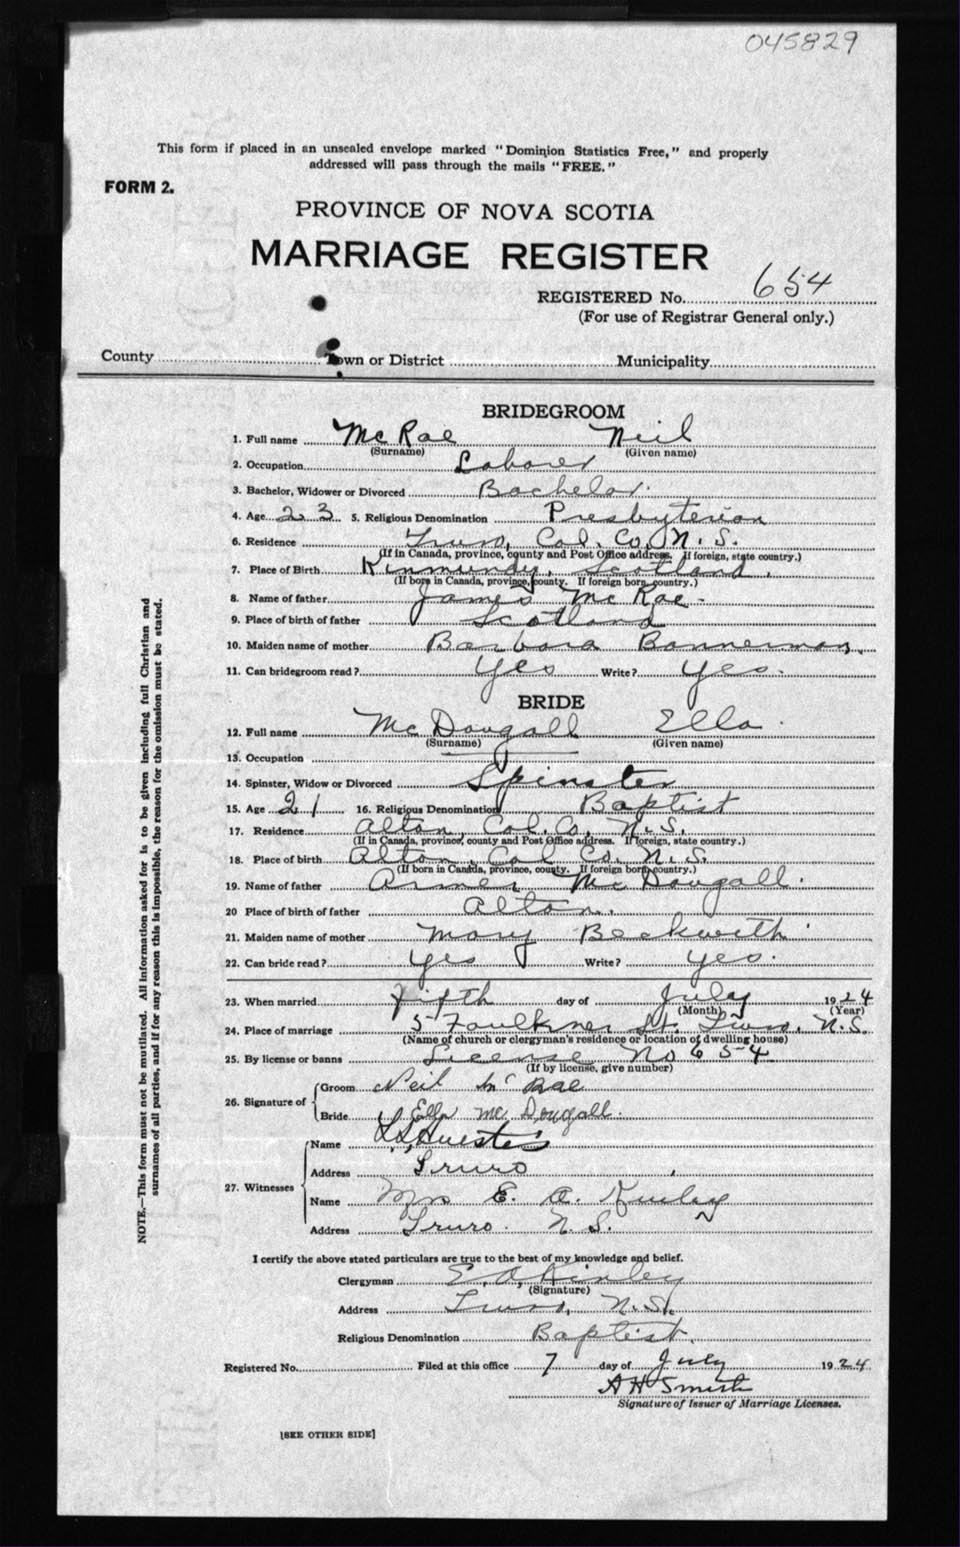 045829
This form if placed in an unsealed envelope marked "Dominion Statistics Free," and properly
addressed will pass through the mails "FREE."
FORM 2.
PROVINCE OF NOVA SCOTIA
MARRIAGE REGISTER
REGISTERED No. 654
(For use of Registrar General only.)
County Town or District Municipality
BRIDEGROOM
1. Full name McRae Neil
(Surname) (Given name)
2. Occupation Laborer
3. Bachelor, Widower or Divorced Bachelor.
4. Age 23 5. Religious Denomination Presbyterian
6. Residence Truro, Col. Co, N.S.
(If in Canada, province, county and Post Office address. If foreign, state country.)
7. Place of Birth Kinmundy, Scotland.
(If born in Canada, province, county. If foreign born, country.)
8. Name of father James McRae-
9. Place of birth of father Scotland
10. Maiden name of mother Barbara Bannerman.
11. Can bridegroom read? Yes Write? Yes.
BRIDE
12. Full name McDougall Ella
(Surname) (Given name)
13. Occupation
14. Spinster, Widow or Divorced Spinster
15. Age 21 16. Religious Denomination Baptist
17. Residence Alton, Col. Co, N.S.
(If in Canada, province, county and Post Office address. If foreign, state country.)
18. Place of birth Alton, Col Co. N.S.
(If born in Canada, province, county. If foreign born, country.)
19. Name of father McDougall.
20 Place of birth of father Alton.
21. Maiden name of mother Mary Beckwith
22. Can bride read? Yes Write? Yes.
23. When married Fifth day of July 1924
(Month) (Year)
24. Place of marriage 5 Faulkner St. Truro, N.S.
(Name of church or clergyman's residence or location of dwelling house)
25. By license or banns License No 654
(If by license, give number)
26. Signature of Groom Neil McRae
Bride Ella McDougall.
27. Witnesses Name
Address Truro
Name Mrs E. A. Kinley
Address Truro. N.S.
I certify the above stated particulars are true to the best of my knowledge and belief.
Clergyman E. A. Kinley
(Signature)
Address Truro, N.S.
Religious Denomination Baptist.
Registered No. Filed at this office 7 day of July 1924
A H Smith
Signature of Issuer of Marriage Licenses.
[SEE OTHER SIDE]
NOTE.—This form must not be mutilated. All information asked for is to be given including full Christian and
surnames of all parties, and if for any reason this is impossible, the reason for the omission must be stated.